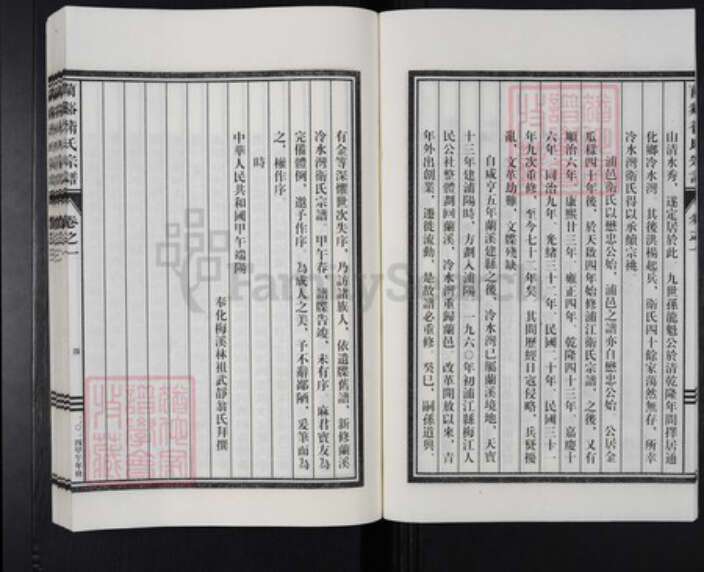 山清水秀，遂定居於此。九世孫龍魁公於清乾隆年間擇居通
化鄉冷水灣。其後洪楊起兵，衛氏四十餘家蕩然無存，所幸
冷水灣衛氏得以承續宗祧。
浦邑衛氏以懋忠公始，浦邑之譜亦自懋忠公始。公居金
瓜樣四十年後，於天啟四年始修浦江衛氏宗譜。之後，又有
順治六年、康熙廿三年、雍正四年、乾隆四十三年、嘉慶十
六年、同治九年、光緒三十二年、民國二十年、民國三十一
年九次重修，至今七十二年矣。其間歷經日寇侵略，兵燹擾
亂，文革劫難，文牒殘缺。
自咸亨五年蘭溪建縣之後，冷水灣已屬蘭溪境地。天寶
十三年建浦陽時，方劃入浦陽。一九六〇年初浦江縣梅江人
民公社整體劃回蘭溪，冷水灣重歸蘭邑。改革開放以來，青
年外出創業，遷徙流動，是故譜必重修。癸巳，嗣孫道興、
有金等深懼世次失序，乃訪諸族人，依遺牒舊譜，新修蘭溪
冷水灣衛氏宗譜。甲午春，譜牒告竣，未有序。麻君寶友為
完備體例，邀予作序。為成人之美，予不辭鄙陋，爰筆而為
之，權作序。
時
中華人民共和國甲午端陽
奉化梅溪林祖武靜翁氏拜撰
蘭谿衛氏宗譜
卷之一
四
二〇一四甲午年修